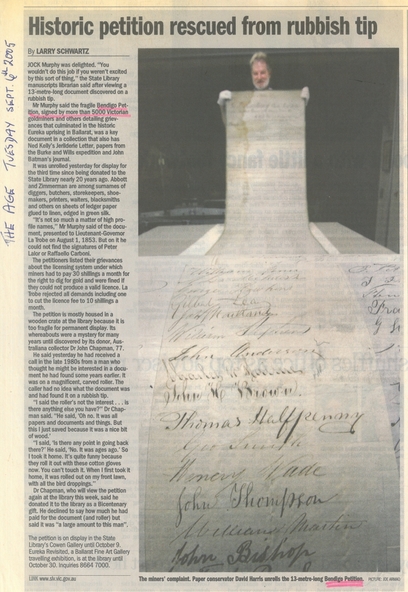 THE AGE TUESDAY SEPT. 6th 2005
Historic petition rescued from rubbish tip
By LARRY SCHWARTZ
JOCK Murphy was delighted. "You
wouldn't do this job if you weren't excited
by this sort of thing," the State Library
manuscripts librarian said after viewing a
13-metre-long document discovered on a
rubbish tip.
Mr Murphy said the fragile Bendigo Pet-
ition, signed by more than 5000 Victorian
goldminers and others detailing griev-
ances that culminated in the historic
Eureka uprising in Ballarat, was a key
document in a collection that also has
Ned Kelly's Jerilderie Letter, papers from
the Burke and Wills expedition and John
Batman's journal.
It was unrolled yesterday for display for
the third time since being donated to the
State Library nearly 20 years ago. Abbott
and Zimmerman are among surnames of
diggers, butchers, storekeepers, shoe-
makers, printers, waiters, blacksmiths
and others on sheets of ledger paper
glued to linen, edged in green silk.
"It's not so much a matter of high pro-
file names," Mr Murphy said of the docu-
ment, presented to Lieutenant-Governor
La Trobe on August 1, 1853. But on it he
could not find the signatures of Peter
Lalor or Raffaello Carboni.
The petitioners listed their grievances
about the licensing system under which
miners had to pay 30 shillings a month for
the right to dig for gold and were fined if
they could not produce a valid licence. La
Trobe rejected all demands including one
to cut the licence fee to 10 shillings a
month.
The petition is mostly housed in a
wooden crate at the library because it is
too fragile for permanent display. Its
whereabouts were a mystery for many
years until discovered by its donor, Aus-
traliana collector Dr John Chapman, 77.
He said yesterday he had received a
call in the late 1980s from a man who
thought he might be interested in a docu-
ment he had found some years earlier. It
was on a magnificent, carved roller. The
caller had no idea what the document was
and had found it on a rubbish tip.
"I said the roller's not the interest . . . is
there anything else you have?" Dr Chap-
man said. "He said, 'Oh no. It was all
papers and documents and things. But
this I just saved because it was a nice bit
of wood.'
"I said, 'Is there any point in going back
there?' He said, 'No. It was ages ago.' So
I took it home. It's quite funny because
they roll it out with these cotton gloves
now. You can't touch it. When I first took it
home, it was rolled out on my front lawn,
with all the bird droppings."
Dr Chapman, who will view the petition
again at the library this week, said he
donated it to the library as a Bicentenary
gift. He declined to say how much he had
paid for the document (and roller) but
said it was "a large amount to this man".
The petition is on display in the State
Library's Cowen Gallery until October 9.
Eureka Revisited, a Ballarat Fine Art Gallery
travelling exhibition, is at the library until
October 30. Inquiries 8664 7000.
LINK www.slv.vic.gov.au
John Anderson
John W. Brown.
Thomas Halfpenny
Geo Smith
Henery Wade
John Thompson
William Martin
John Bishop
The miners' complaint. Paper conservator David Harris unrolls the 13-metre-long Bendigo Petition.
PICTURE: JOE ARMAO